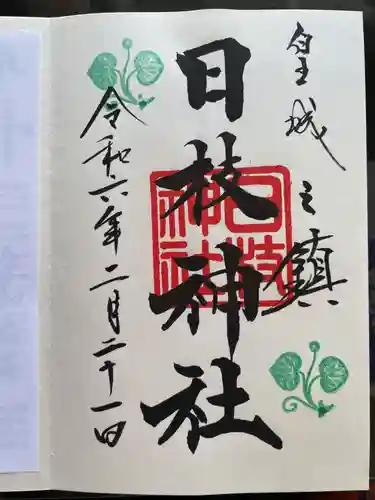 皇城之鎮
日枝神社
日枝神社
令和六年二月二十一日